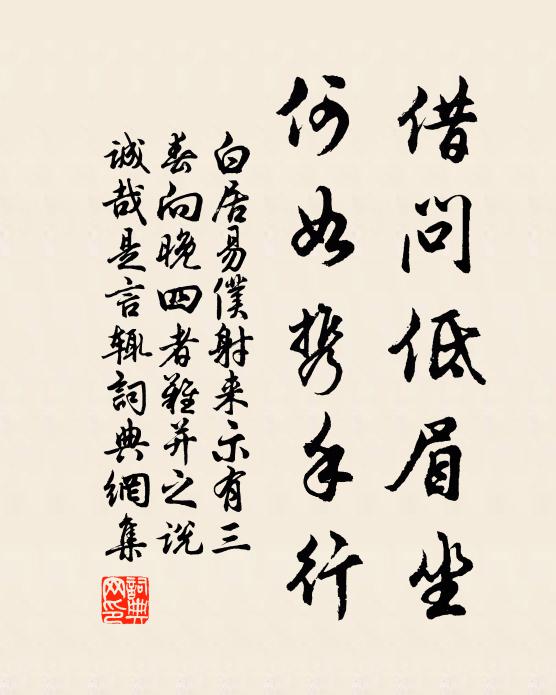 借问低眉坐
何如携手行
白居易僕射来示有三
春向晚四者难并之说
诚哉是言辄詞典網集
詞典網印